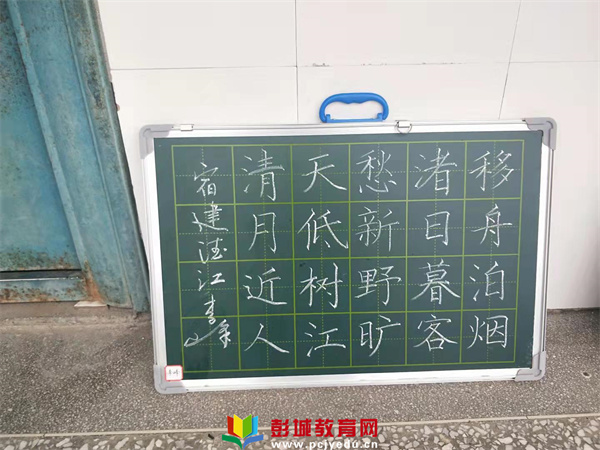 移舟泊烟
渚日暮客
愁新野旷
天低树江
清月近人
宿建德江李峰
彭城教育网
www.pcjyedu.cn